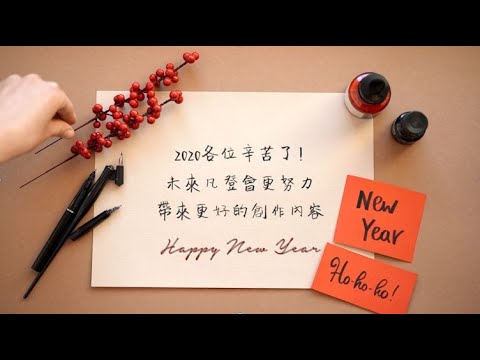 2020各位辛苦了!
未來凡登會更努力
帶來更好的創作內容
Happy New Year
New
Year
Ho-ho-ho!